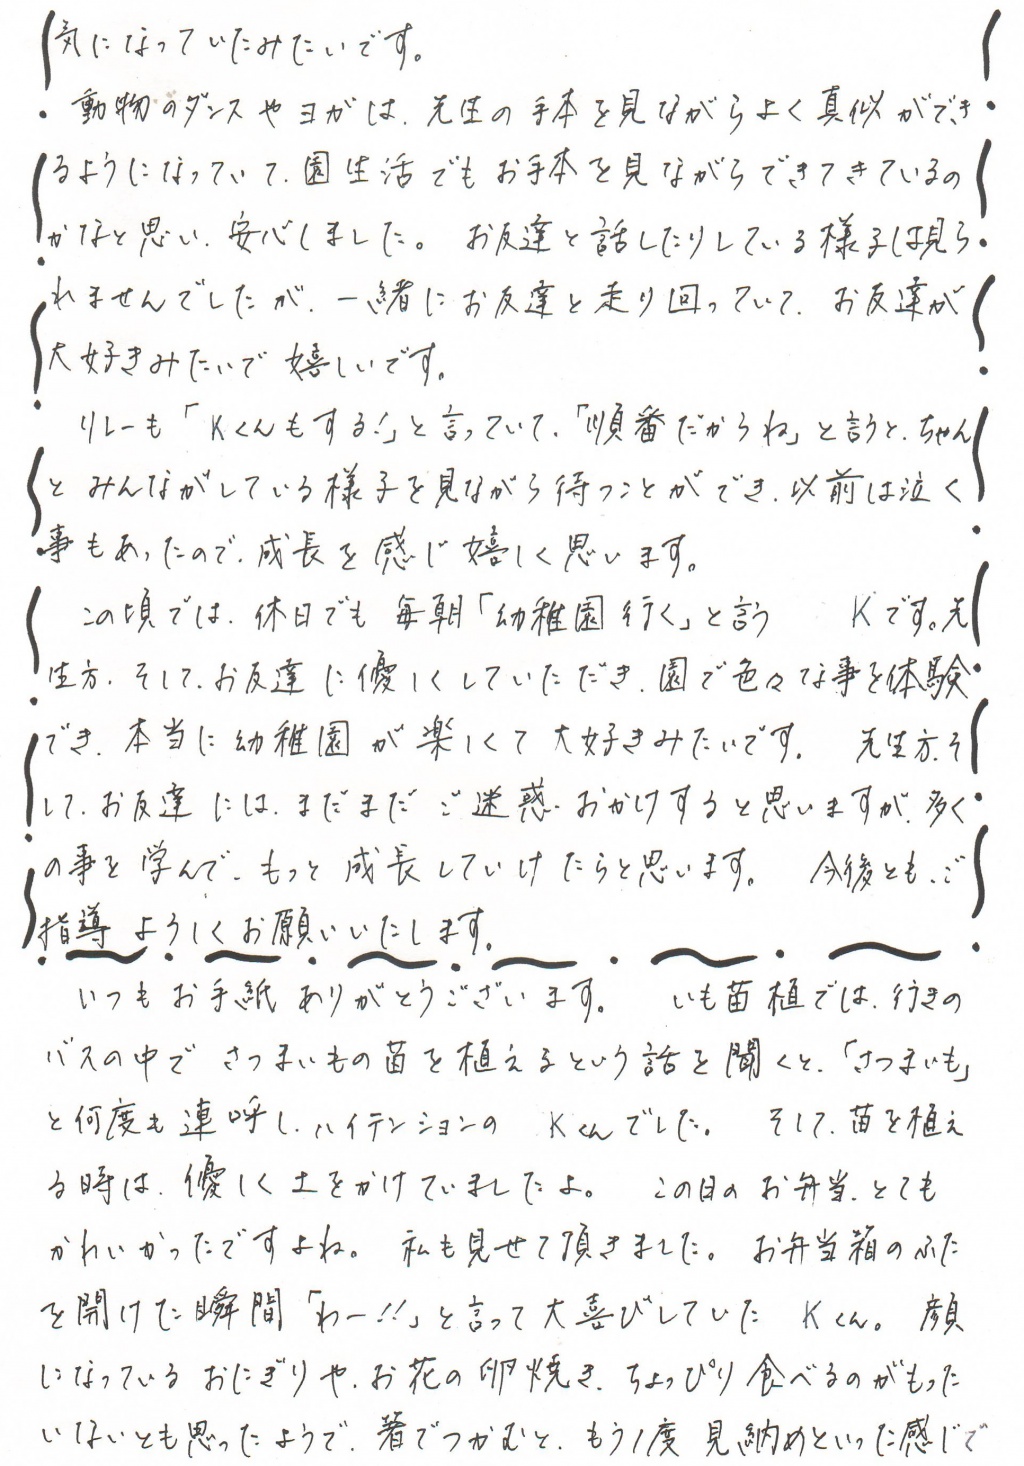 気になっていたみたいです。
動物のダンスやヨガは、先生の手本を見ながらよく真似ができ
るようになっていて、園生活でもお手本を見ながらできてきているの
かなと思い、安心しました。 お友達と話したりしている様子は見ら
れませんでしたが、一緒にお友達と走り回っていて、お友達が
大好きみたいで嬉しいです。
リレーも「Kくんもする!」と言っていて、「順番だからね」と言うと、ちゃん
とみんながしている様子を見ながら待つことができ、以前は泣く
事もあったので、成長を感じ嬉しく思います。
この頃では、休日でも毎朝「幼稚園行く」と言う Kです。先
生方、そして、お友達に優しくしていただき、園で色々な事を体験
でき、本当に幼稚園が楽しくて大好きみたいです。 先生方、そ
して、お友達には、まだまだご迷惑おかけすると思いますが、多く
の事を学んで、もっと成長していけたらと思います。 今後とも、ご
指導よろしくお願いいたします。
いつもお手紙ありがとうございます。 いも苗植では、行きの
バスの中でさつまいもの苗を植えるという話を聞くと、「さつまいも」
と何度も連呼し、ハイテンションの Kくんでした。 そして、苗を植え
る時は、優しく土をかけていましたよ。 この日のお弁当、とても
かわいかったですよね。 私も見せて頂きました。 お弁当箱のふた
を開けた瞬間「わー!!」と言って大喜びしていた Kくん。 顔
になっているおにぎりや、お花の卵焼き、ちょっぴり食べるのがもった
いないとも思ったようで、箸でつかむと、もう1度見納めといった感じで